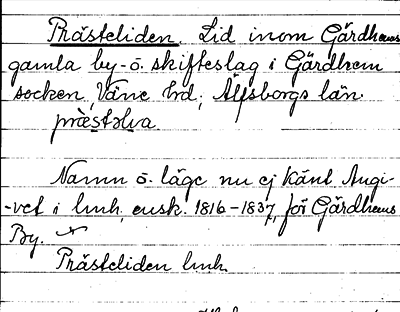 Prästeliden. Lid inom Gärdhems
gamla by- o. skifteslag i Gärdhem
socken, Väne hd, Älfsborgs län.
præstəlva
Namn o. läge nu ej känt Angi-
-vet i lmh. ensk. 1816-1837, för Gärdhems
By.
Prästeliden lmh.